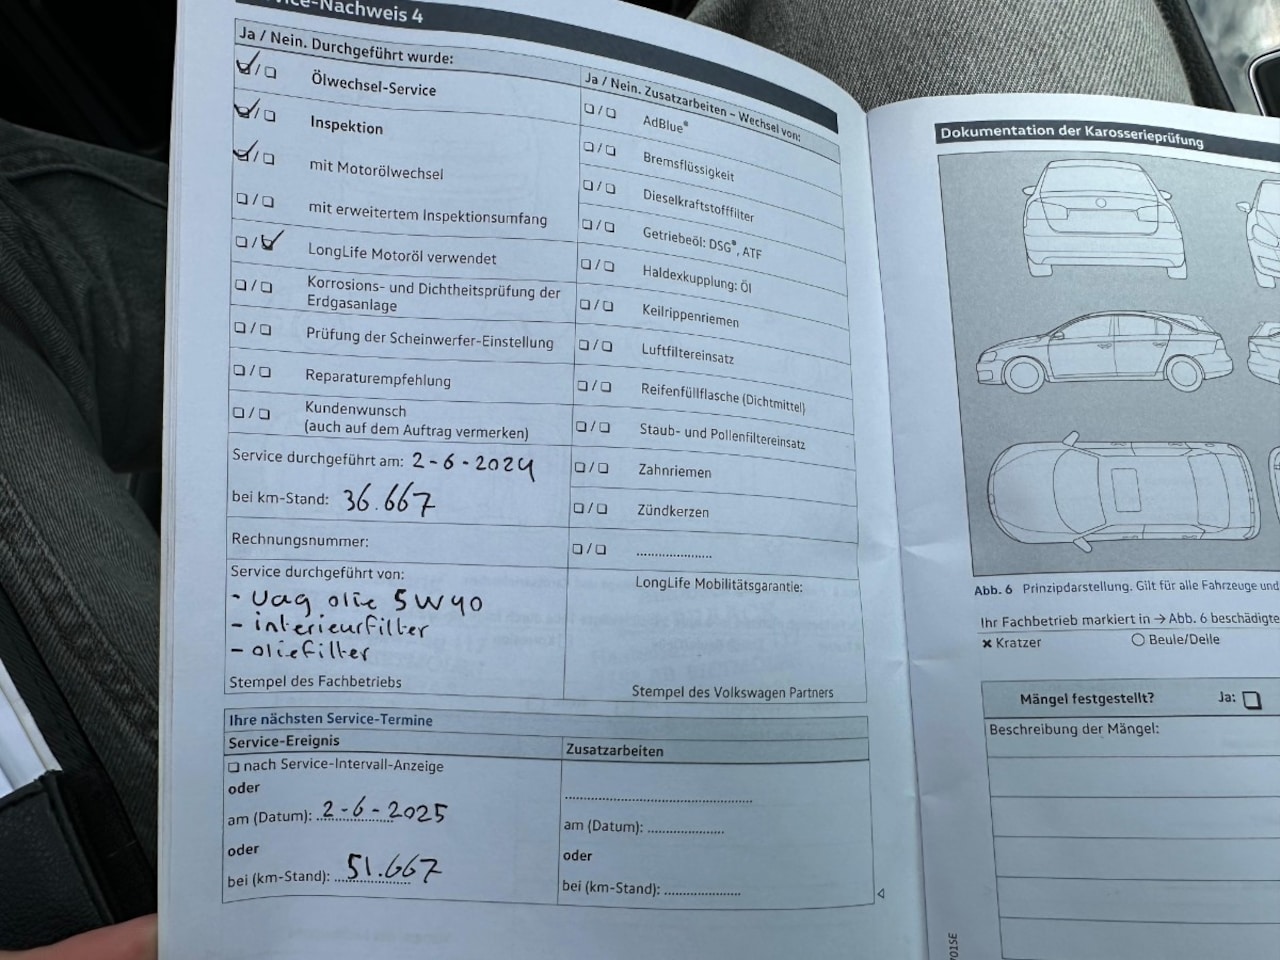 ice-Nachweis 4
Ja / Nein. Durchgeführt wurde:
Ölwechsel-Service
Inspektion
mit Motorölwechsel
mit erweitertem Inspektionsumfang
LongLife Motoröl verwendet
Korrosions- und Dichtheitsprüfung der
Erdgasanlage
Prüfung der Scheinwerfer-Einstellung
Reparaturempfehlung
Kundenwunsch
(auch auf dem Auftrag vermerken)
Service durchgeführt am: 2-6-2024
bei km-Stand: 36.667
Rechnungsnummer:
Service durchgeführt von:
- Vag olie 5W40
- interieurfilter
- oliefilter
Stempel des Fachbetriebs
Ja / Nein. Zusatzarbeiten – Wechsel von:
AdBlue®
Bremsflüssigkeit
Dieselkraftstofffilter
Getriebeöl: DSG®, ATF
Haldexkupplung: Öl
Keilrippenriemen
Luftfiltereinsatz
Reifenfüllflasche (Dichtmittel)
Staub- und Pollenfiltereinsatz
Zahnriemen
Zündkerzen
LongLife Mobilitätsgarantie:
Stempel des Volkswagen Partners
Ihre nächsten Service-Termine
Service-Ereignis
nach Service-Intervall-Anzeige
oder
am (Datum): 2-6-2025
oder
bei (km-Stand): 51.667
Zusatzarbeiten
am (Datum):
oder
bei (km-Stand):
Dokumentation der Karosserieprüfung
Abb. 6 Prinzipdarstellung. Gilt für alle Fahrzeuge und
Ihr Fachbetrieb markiert in → Abb. 6 beschädigte
Kratzer
Beule/Delle
Mängel festgestellt? Ja:
Beschreibung der Mängel: